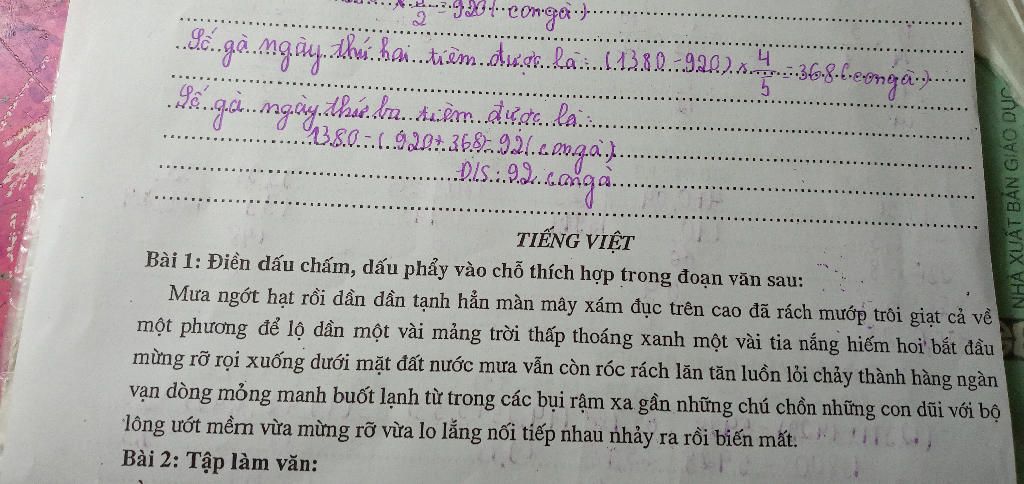 2 = 920 ( con gà )
Số gà ngày thứ hai tiêm được là : (1380 - 920) x 4/5 = 368 ( con gà )
Số gà ngày thứ ba tiêm được là :
1380 - ( 920 + 368) = 92 ( con gà )
Đ/S : 92 con gà
TIẾNG VIỆT
Bài 1: Điền dấu chấm, dấu phẩy vào chỗ thích hợp trong đoạn văn sau:
Mưa ngớt hạt rồi dần dần tạnh hẳn màn mây xám đục trên cao đã rách mướp trôi giạt cả về
một phương để lộ dần một vài mảng trời thấp thoáng xanh một vài tia nắng hiếm hoi bắt đầu
mừng rỡ rọi xuống dưới mặt đất nước mưa vẫn còn róc rách lăn tăn luồn lỏi chảy thành hàng ngàn
vạn dòng mỏng manh buốt lạnh từ trong các bụi rậm xa gần những chú chồn những con dũi với bộ
lông ướt mềm vừa mừng rỡ vừa lo lắng nối tiếp nhau nhảy ra rồi biến mất.
Bài 2: Tập làm văn:
NHÀ XUẤT BẢN GIÁO DỤC